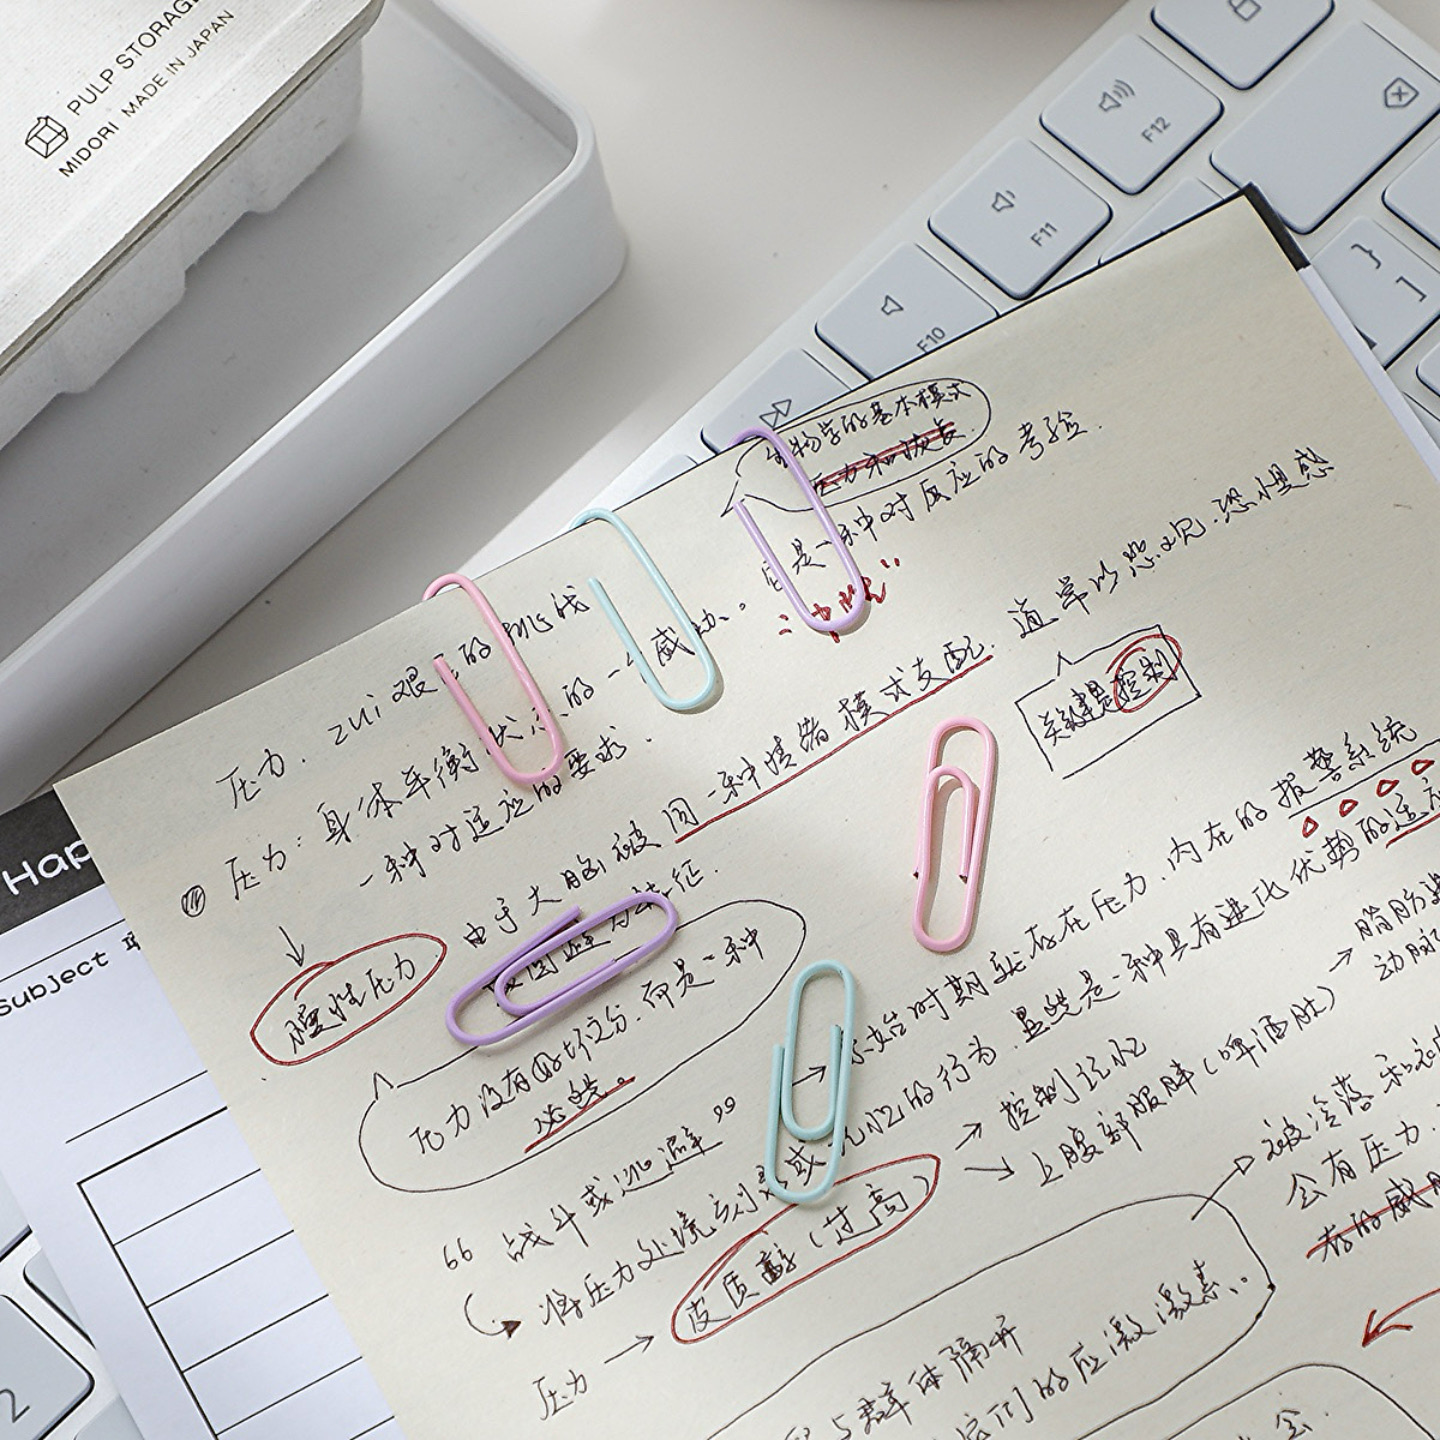 PULP STORAGE
MIDORI MADE IN JAPAN
F12
F11
F10
}
]
生物学的基本模式
压力和成长.
是一种对反应的考验.
压力. zui艰 的挑战
压力:身体平衡状态的一 威 。
一种对适应的要求.
由于大脑被同一种情绪模式支配. 通常以悲观.恐惧感
为特征.
关键是控制
慢性压力
压力没有好坏之分.而是一种
必然。
原始时期就存在压力.内在的报警系统
显然是一种具有进化优势的适应
“战斗或逃避”
将压力处境 或 的行为.
→控制记忆
→上腹部肥胖(啤酒肚)
→脂肪
动脉
压力→皮质醇(过高)
被冷落和
会有压力.
存的威
与群体隔开
们的应激激素.
会.
Hap
Subject
2